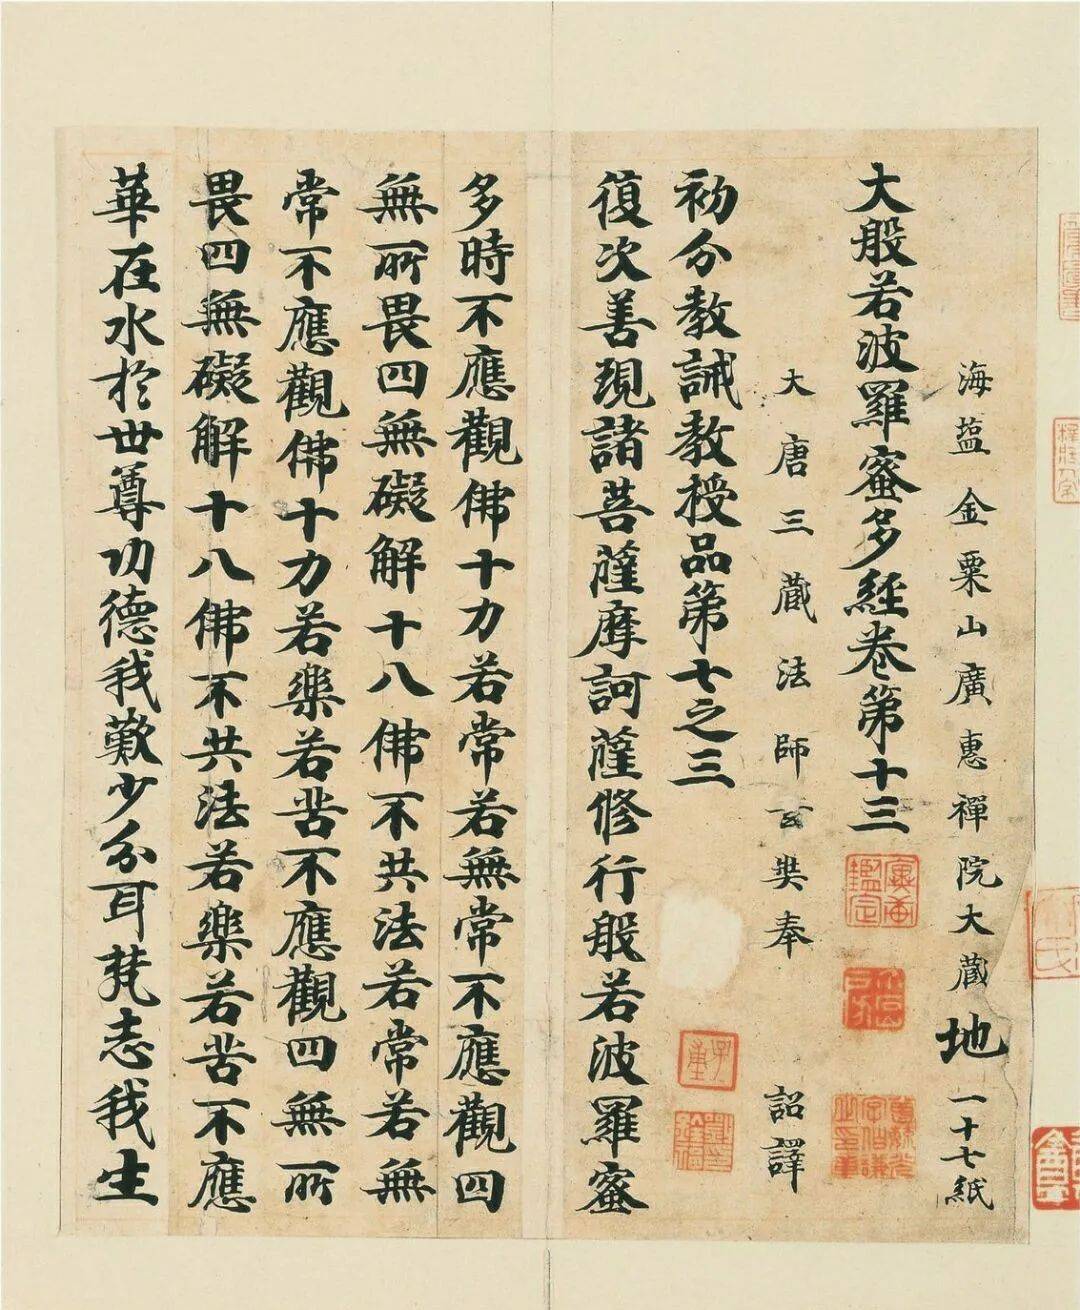 海塩金粟山廣惠禪院大藏 地 一十七紙
大般若波羅蜜多經卷第十三
大唐三藏法師玄奘奉 詔譯
初分教誡教授品第七之三
復次善現諸菩薩摩訶薩修行般若波羅蜜
多時不應觀佛十力若常若無常不應觀四
無所畏四無礙解十八佛不共法若常若無
常不應觀佛十力若樂若苦不應觀四無所
畏四無礙解十八佛不共法若樂若苦不應
華在水於世尊功德我歎少分耳梵志我生